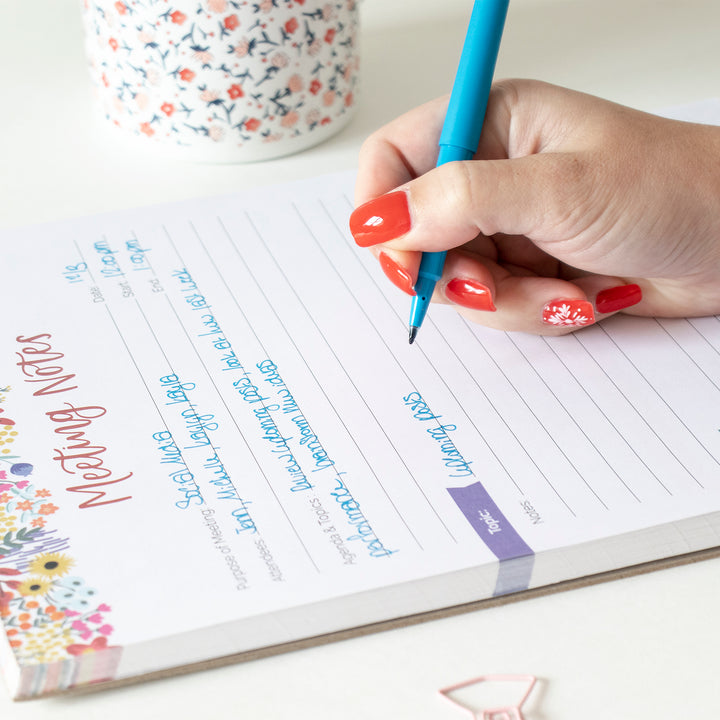 Meeting Notes
Date: 12/8
Start: 12:00pm
End: 1:00pm
Purpose of Meeting: Social Media
Attendees: Jenn, Michelle, Kaylyn, Kayla
Agenda & Topics: Review upcoming posts, look at last week
performance, brainstorm new ideas
Topic: Upcoming posts
Notes: